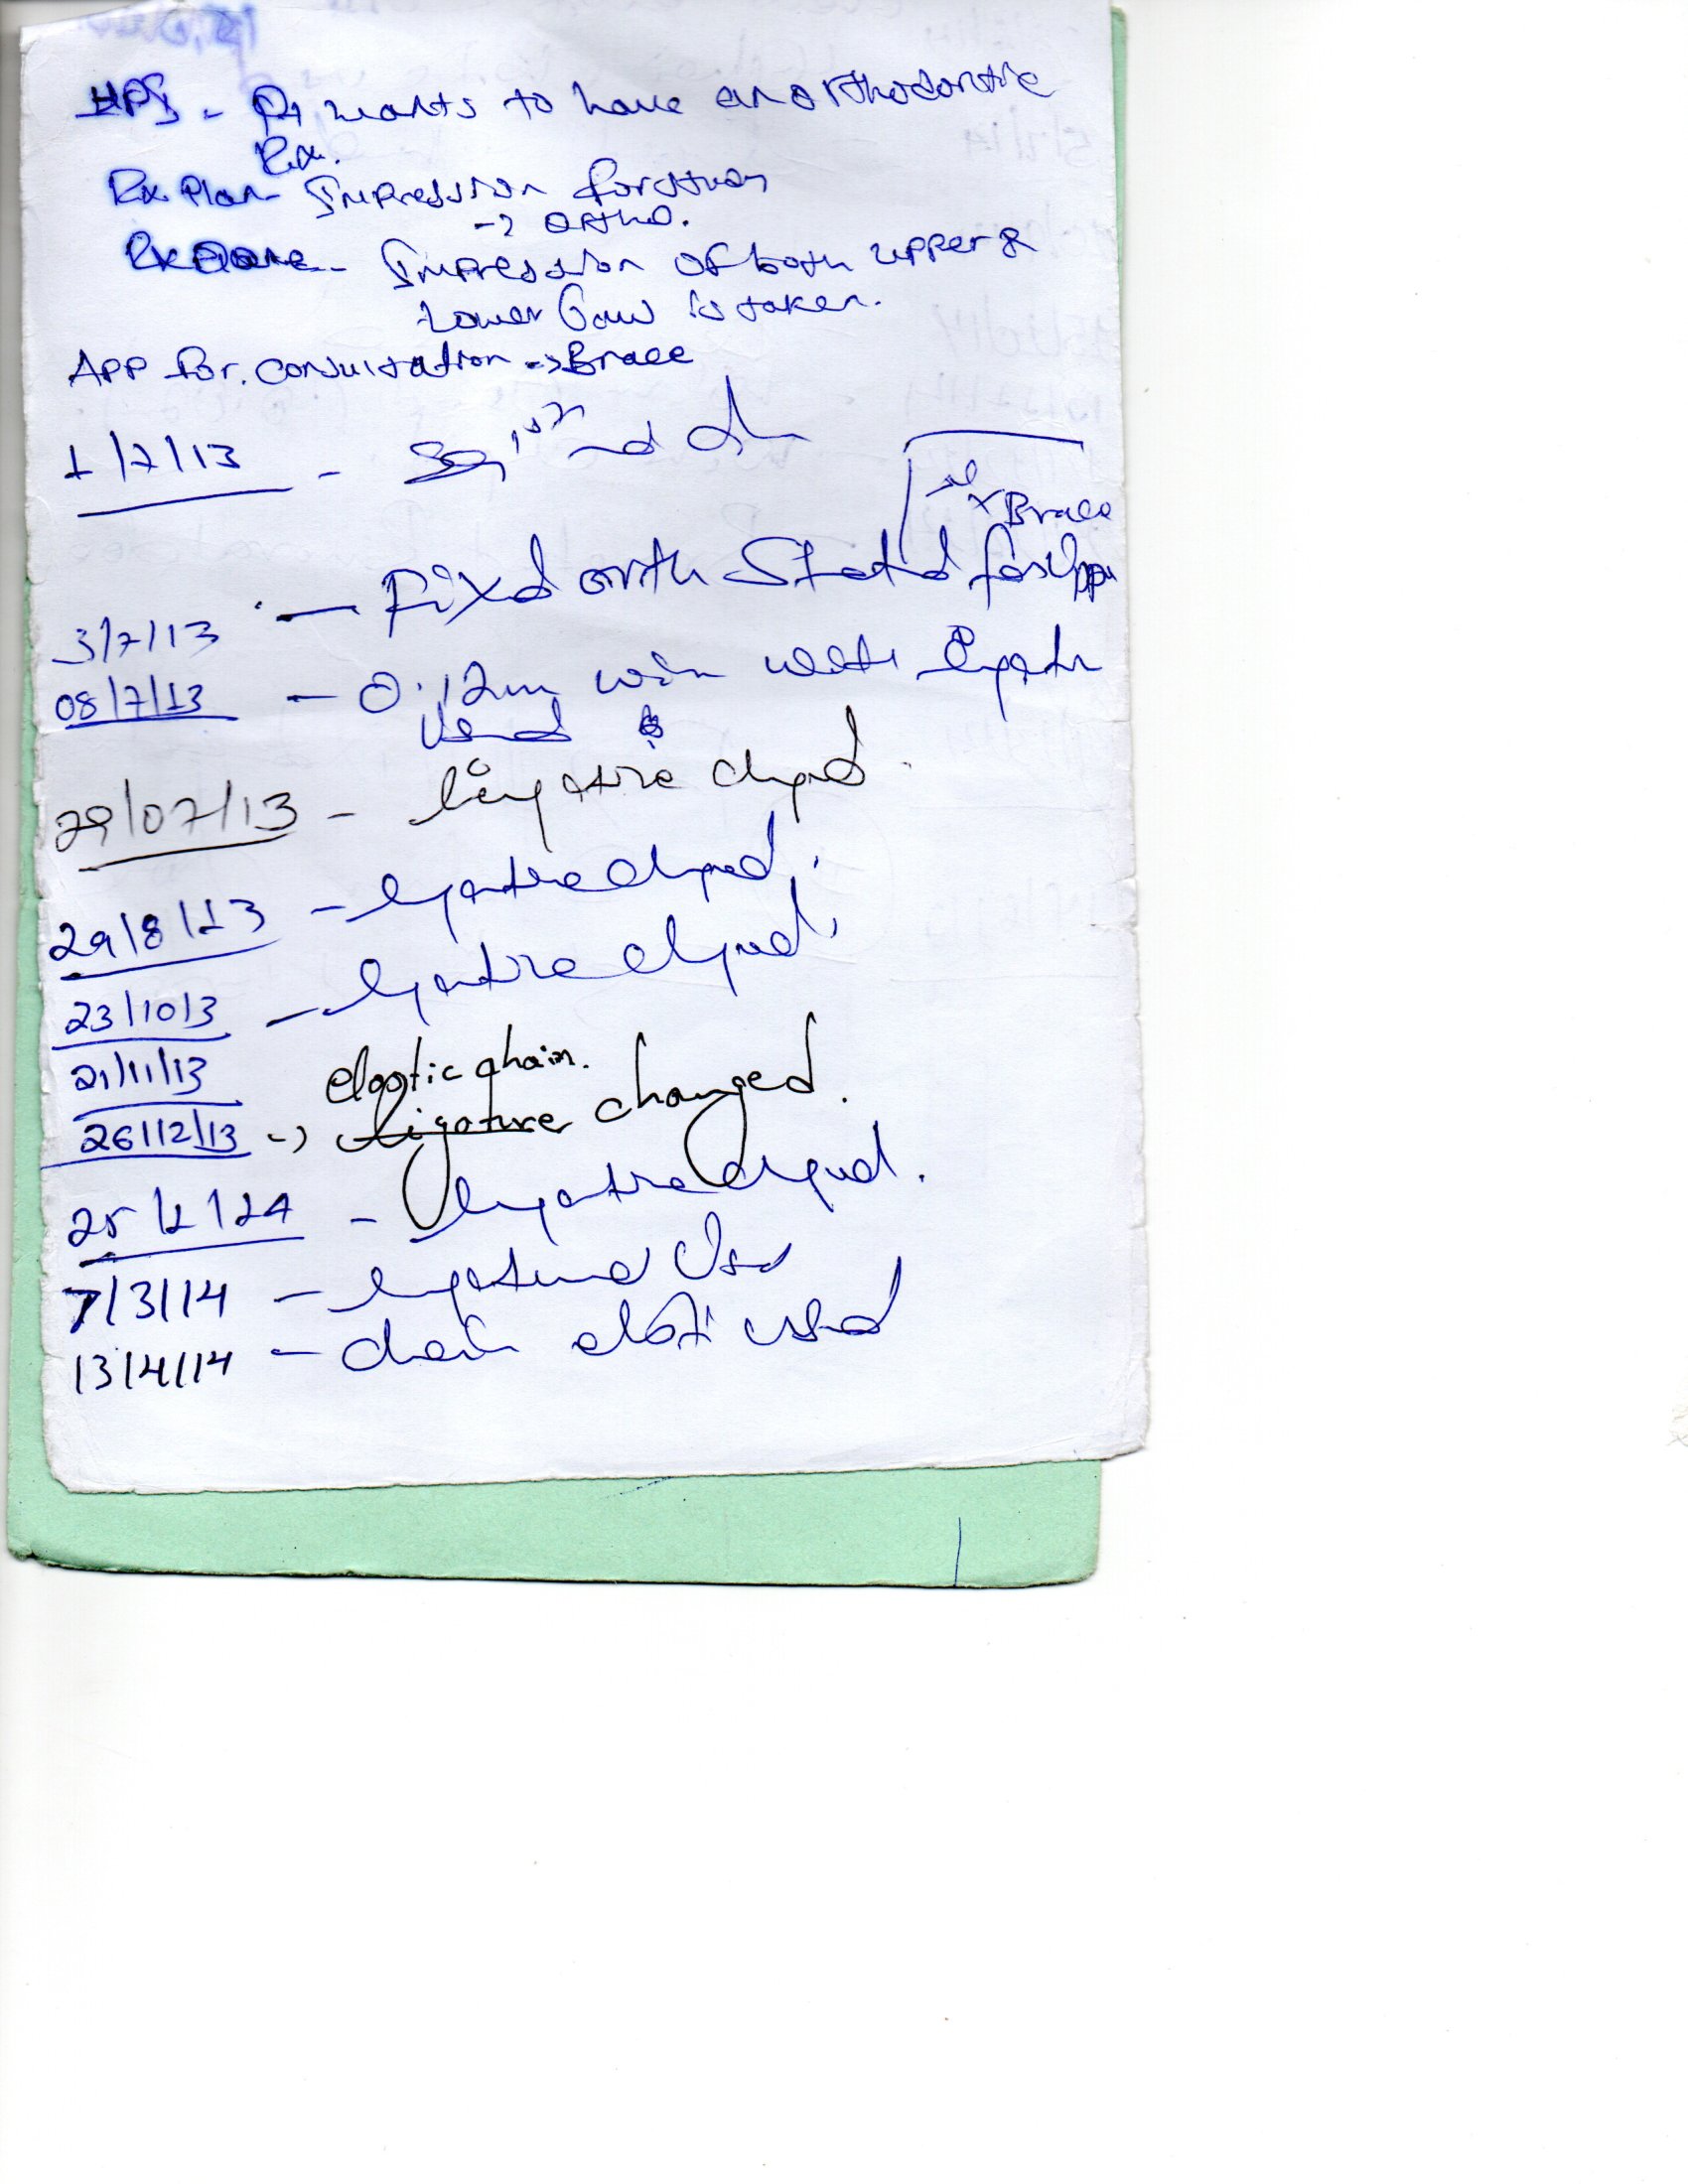 HPI - Pt wants to have an orthodontic
Rx.
Rx Plan - Impression for study
-> ortho.
Rx Done - Impression of both upper &
Lower Jaw is taken.
App for. consultation -> Brace
1/7/13 -
Brace
3/7/13 - Fixd orth Stated for Upper
08/7/13 - 0.12mm with
Used
29/07/13 - ligature changed.
29/8/13 - ligature changed.
23/10/13 - ligature changed.
21/11/13 elastic chain.
26/12/13 -> ligature changed.
25/2/14 - ligature changed.
7/3/14 - ligature Used
13/4/14 - chain elasti used